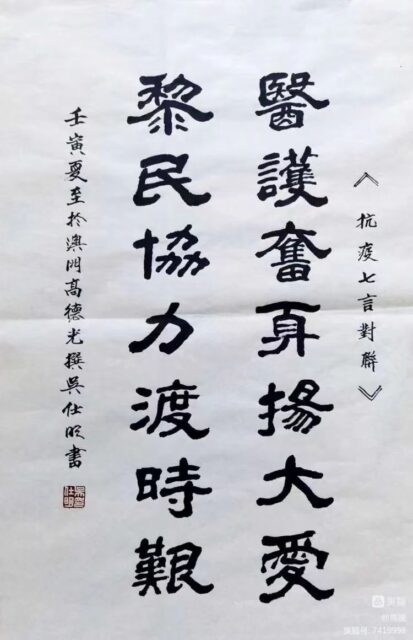 《抗疫七言對聯》
醫護奮身揚大愛
黎民協力渡時艱
壬寅夏至於澳門高德光撰吳仕明書
美篇
美篇号: 7419998